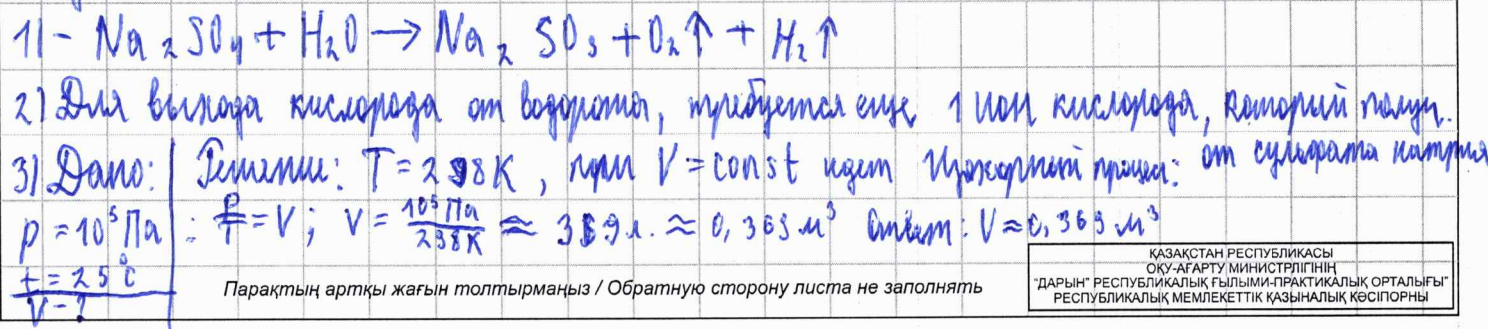 1) - Na₂SO₄ + H₂O → Na₂SO₃ + O₂↑ + H₂↑
2) Для выхода кислорода от водорота, требуется еще 1 ион кислорода, который получ.
от сульфата натрия
3) Дано: Решение: T = 298K, при V = const идет Изохорный процес:
p = 10⁵ Па : P/T = V; V = 10⁵ Па/298K ≈ 369 л. ≈ 0,369 м³ Ответ: V ≈ 0,369 м³
t = 25°C
V - ?
Парақтың артқы жағын толтырмаңыз / Обратную сторону листа не заполнять
ҚАЗАҚСТАН РЕСПУБЛИКАСЫ
ОҚУ-АҒАРТУ МИНИСТРЛІГІНІҢ
"ДАРЫН" РЕСПУБЛИКАЛЫҚ ҒЫЛЫМИ-ПРАКТИКАЛЫҚ ОРТАЛЫҒЫ"
РЕСПУБЛИКАЛЫҚ МЕМЛЕКЕТТІК ҚАЗЫНАЛЫҚ КӘСІПОРНЫ